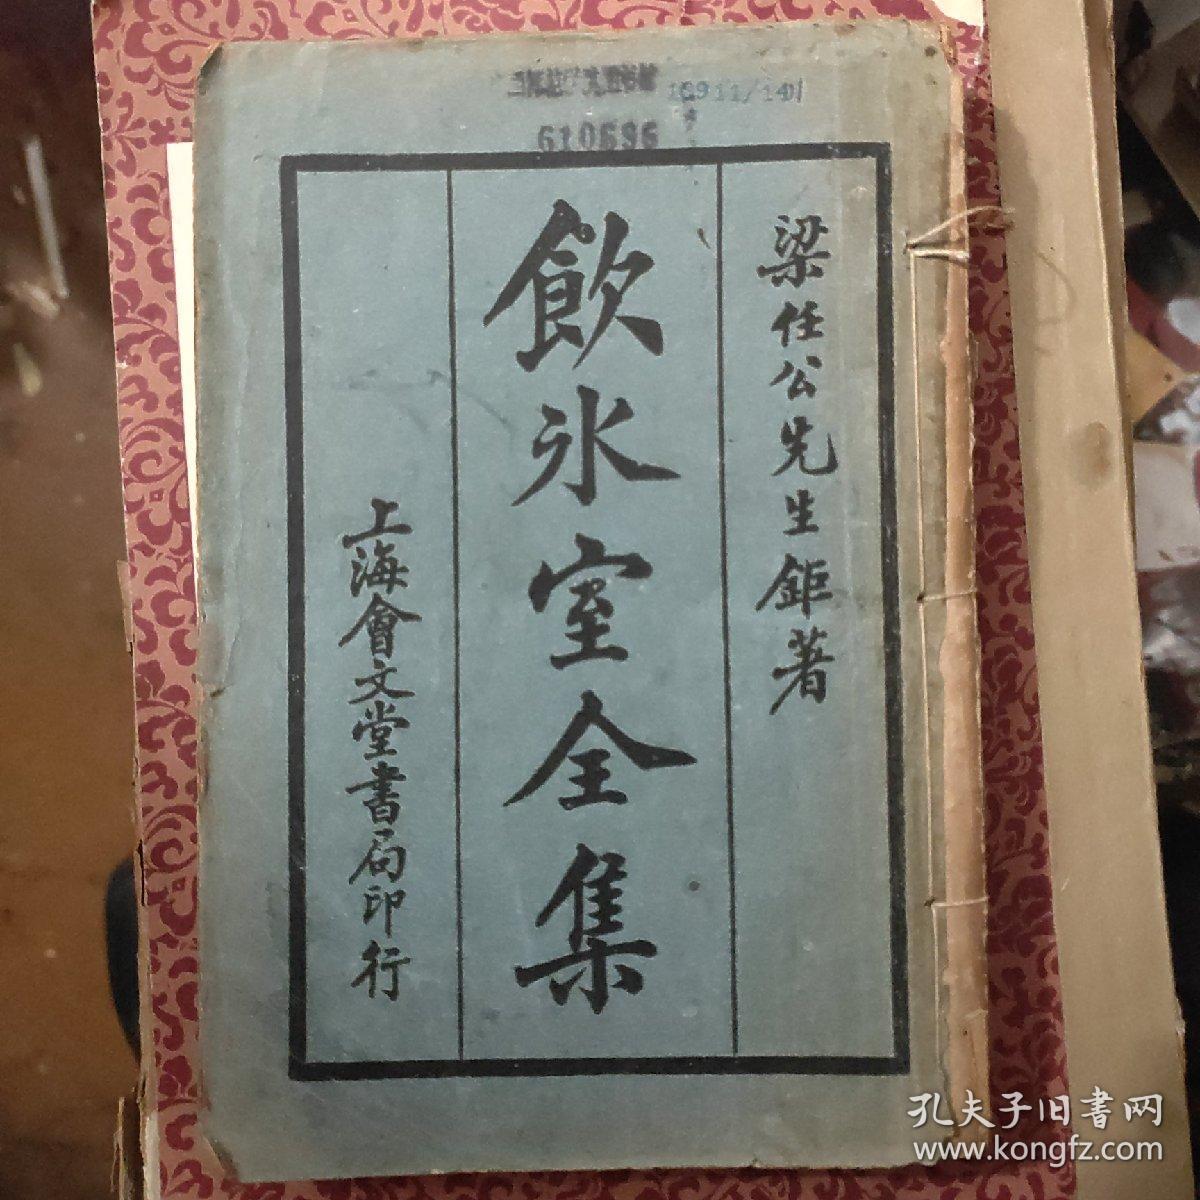 610696
梁任公先生鉅著
飲氷室全集
上海會文堂書局印行
孔夫子旧書网
www.kongfz.com